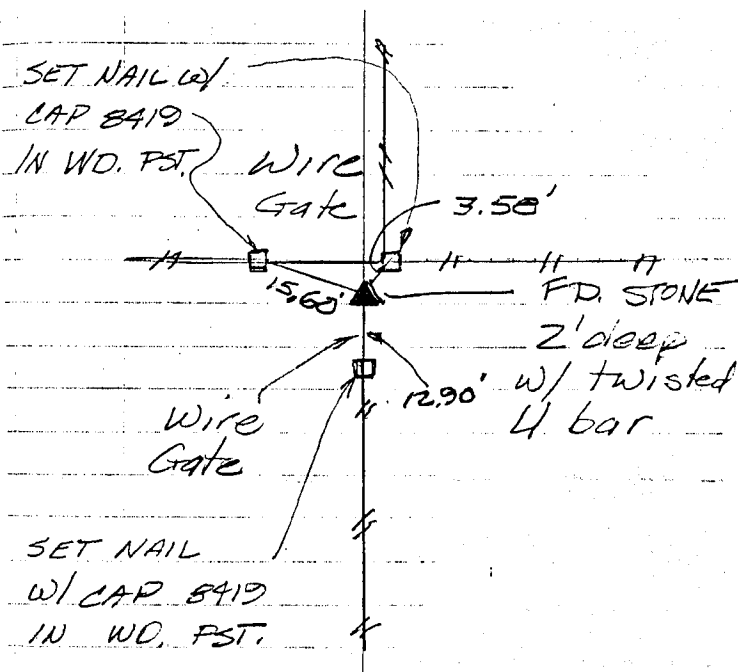 SET NAIL W/
CAP 8419
IN WD. PST.
Wire
Gate
3.58'
15.60'
FD. STONE
2' deep
w/ twisted
U bar
12.90'
Wire
Gate
SET NAIL
W/ CAP 8419
IN WD. PST.